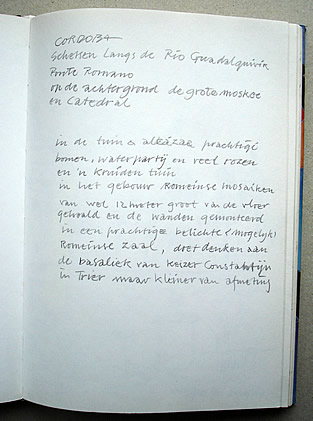 CORDOBA
Schetsen Langs de Rio Guadalquivir
Ponte Romano
op de achtergrond de grote moskee
en Catedral
in de tuin alcázar prachtige
bomen, waterpartij en veel rozen
en 'n kruiden tuin
in het gebouw Romeinse mosaïken
van wel 12 meter groot van de vloer
gehaald en de wanden gemonteerd
in een prachtige belichte (mogelijk)
Romeinse zaal, doet denken aan
de basaliek van keizer Constantijn
in Trier maar kleiner van afmeting